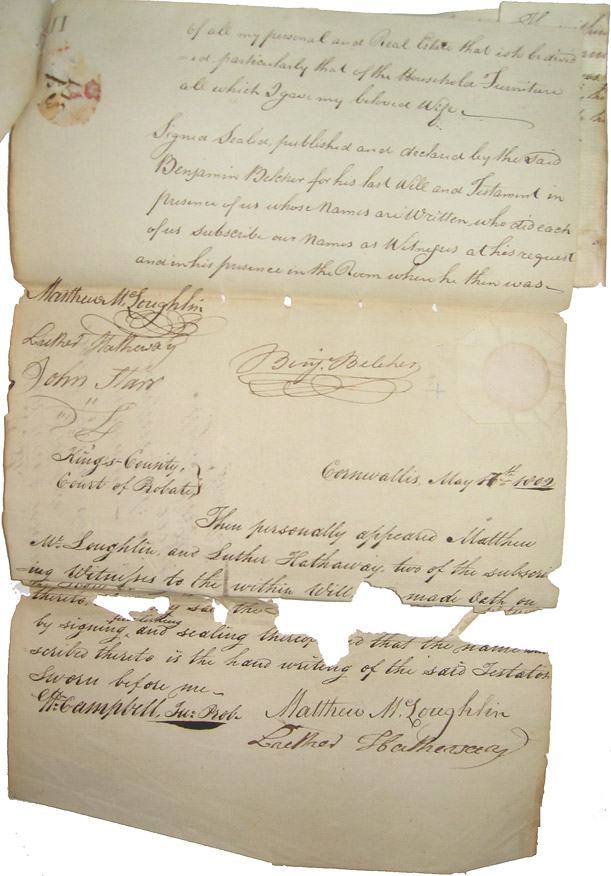 of all my personal and Real Estate that is to be divid
=ed particularly that of the Household Furniture
all which I gave my beloved Wife.
Signed Sealed, published and declared by the said
Benjamin Belcher for his last Will and Testament in
presence of us whose Names are Written, who did each
of us subscribe our Names as Witnesses at his request
and in his presence in the Room where he then was
Matthew McLoughlin
Luther Hathaway
John Starr
Benj. Belcher
Kings County,
Court of Probate
Cornwallis, May 1802
Then personally appeared Matthew
Mc Loughlin, and Luther Hathaway, two of the subscri
=ing Witnesses to the within Will made Oath on
thereto, saw the
publishing
by signing, and sealing thereof that the name
scribed thereto is the hand writing of the said Testator
Sworn before me
Wm. Campbell, Jus: Prob. Matthew McLoughlin
Luther Hathaway